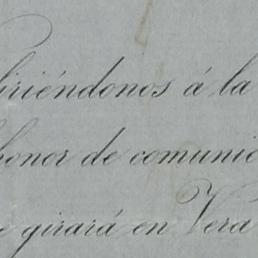 iriéndonos á la
honor de comunic
e girará en Vera